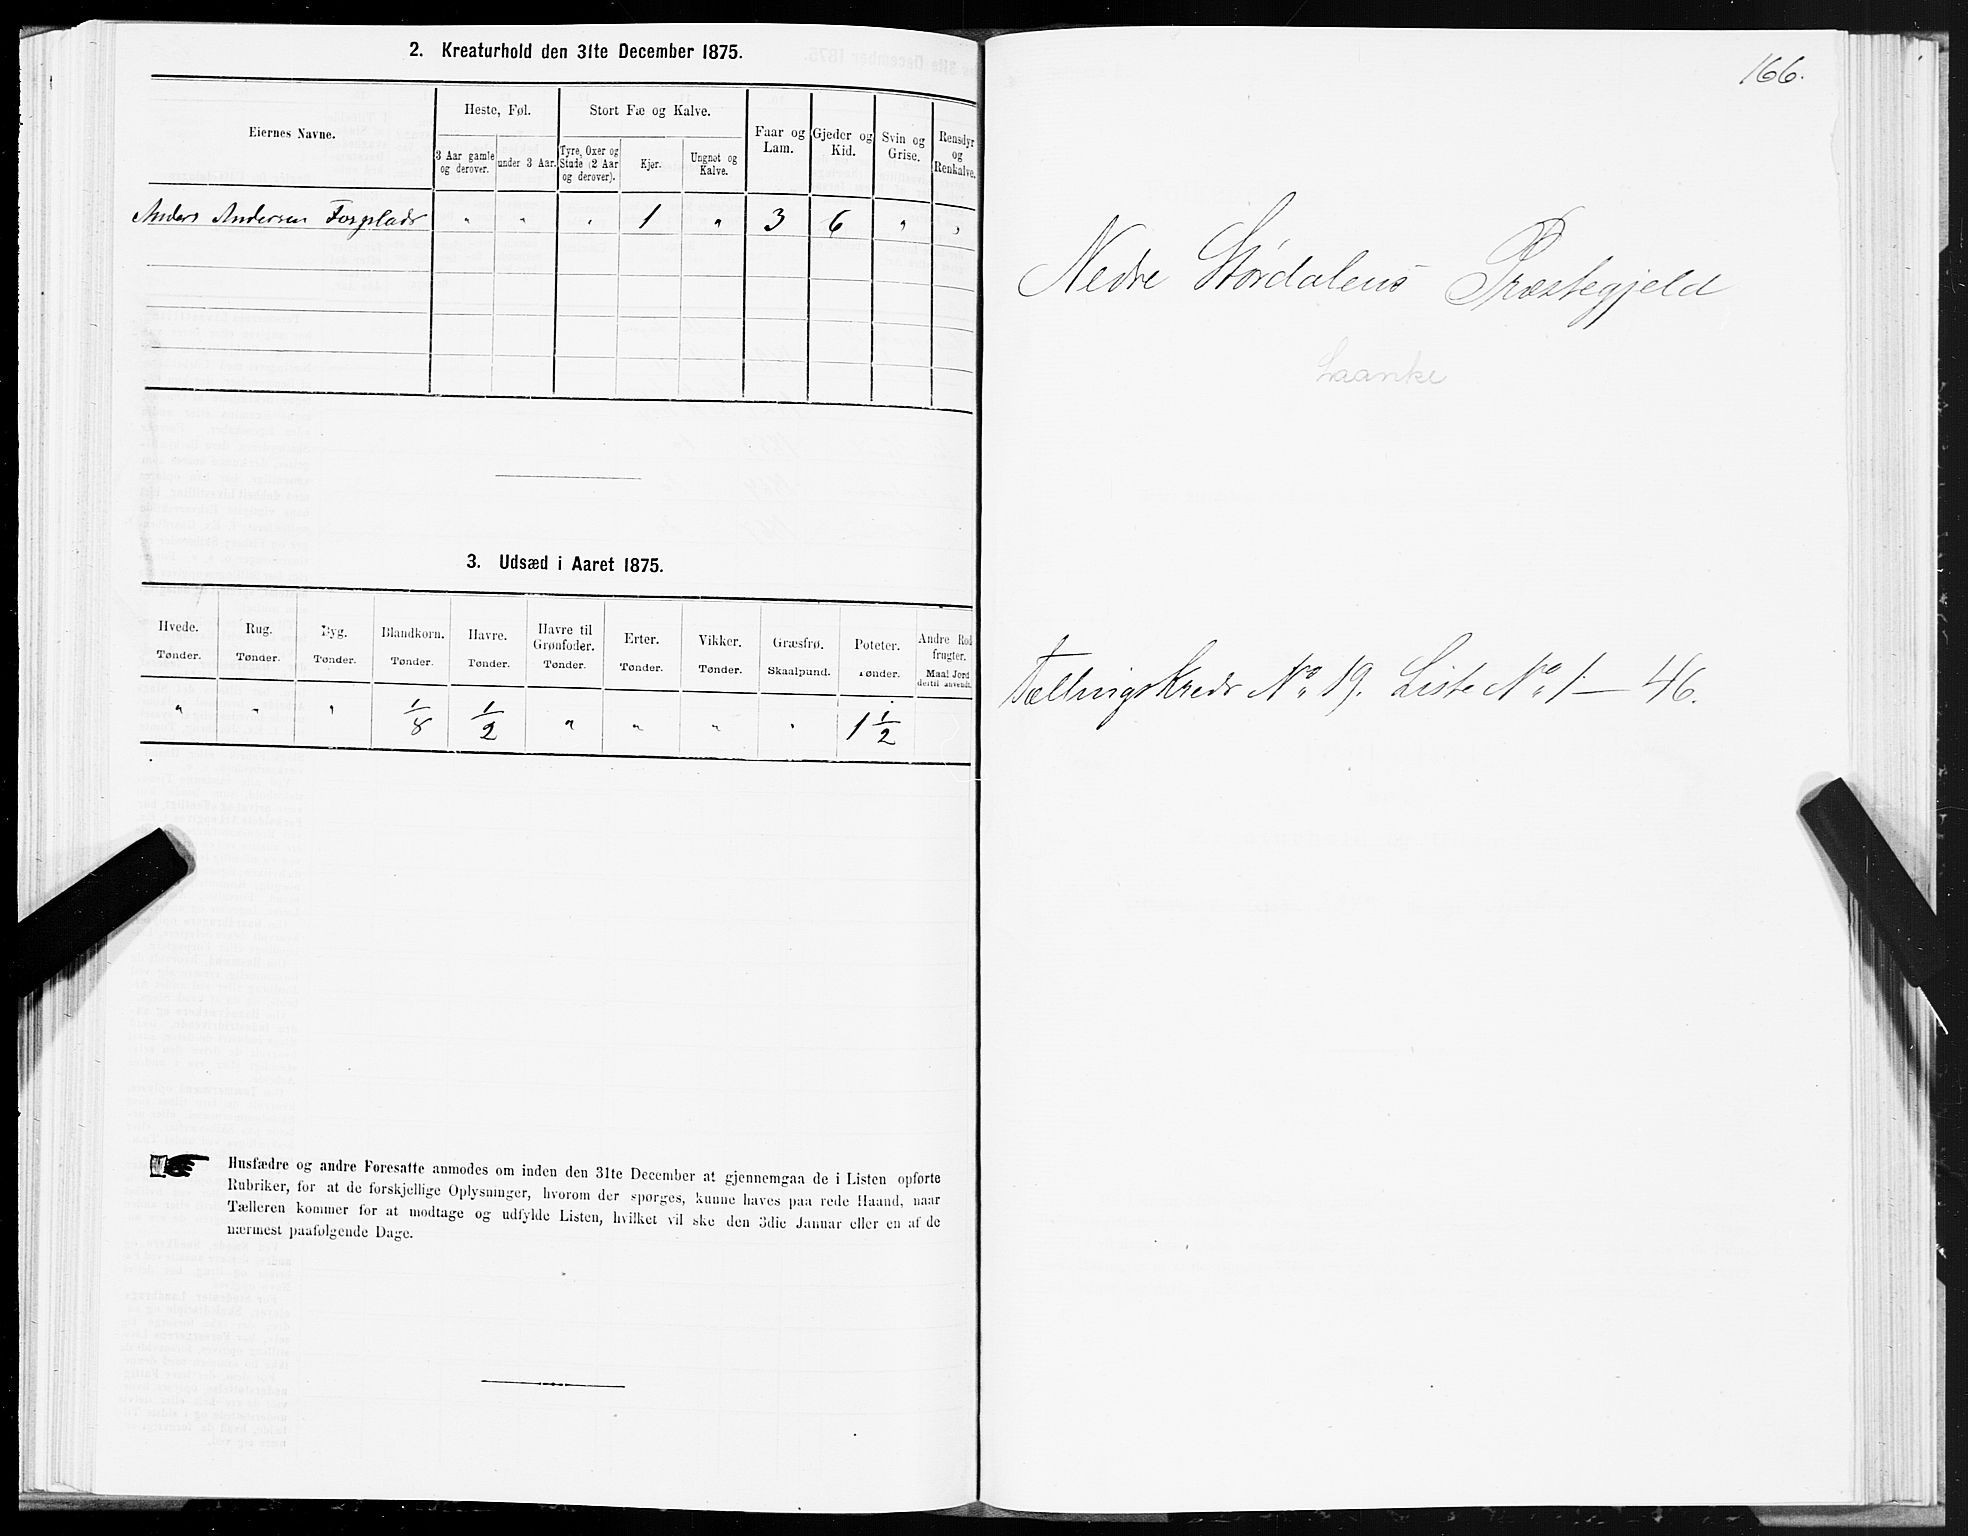 2. Kreaturhold den 31te December 1875.
Eiernes Navne.
Heste, Føl.
Stort Fæ og Kalve.
Faar og Lam.
Gjeder og Kid.
Svin og Grise.
Rensdyr og Renkalve.
3 Aar gamle og derover.
under 3 Aar.
Tyre, Oxer og Stude (2 Aar og derover).
Kjør.
Ungnøt og Kalve.
Anders Andersen Fosplads " " " 1 " 3 6 " "
3. Udsæd i Aaret 1875.
Hvede. Rug. Byg. Blandkorn. Havre. Havre til Grønfoder. Erter. Vikker. Græsfrø. Poteter. Andre Rodfrugter.
Tønder. Tønder. Tønder. Tønder. Tønder. Tønder. Tønder. Tønder. Skaalpund. Tønder. Maal Jord dertil anvendt.
" " " 1/8 1/2 " " " " 1 1/2
Husfædre og andre Foresatte anmodes om inden den 31te December at gjennemgaa de i Listen opførte
Rubriker, for at de forskjellige Oplysninger, hvorom der spørges, kunne haves paa rede Haand, naar
Tælleren kommer for at modtage og udfylde Listen, hvilket vil ske den 3die Januar eller en af de
nærmest paafølgende Dage.
166.
Nedre Størdalens Præstegjeld
Laanke
Tællingskreds No. 19. Liste No. 1 — 46.